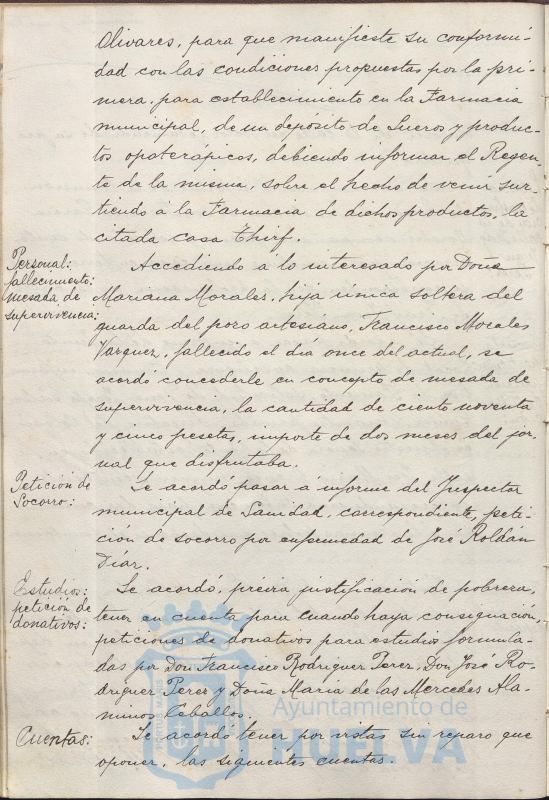 Olivares, para que manifieste su conformi-
dad con las condiciones propuestas por la pri-
mera, para establecimiento en la Farmacia
municipal, de un depósito de Sueros y produc-
tos opoterápicos, debiendo informar el Regen-
te de la misma, sobre el hecho de venir sur-
tiendo a la Farmacia de dichos productos, la
citada casa Thirf.
Personal:
fallecimiento:
mesada de
supervivencia:
Accediendo a lo interesado por Doña
Mariana Morales, hija única soltera del
guarda del pozo artesiano, Francisco Morales
Vazquez, fallecido el día once del actual, se
acordó concederle en concepto de mesada de
supervivencia, la cantidad de ciento noventa
y cinco pesetas, importe de dos meses del jor-
nal que disfrutaba.
Petición de
Socorro:
Se acordó pasar a informe del Inspector
municipal de Sanidad, correspondiente, peti-
ción de socorro por enfermedad de José Roldán
Díaz.
Estudios:
petición de
donativos:
Se acordó, previa justificación de pobreza,
tener en cuenta para cuando haya consignación,
peticiones de donativos para estudios formula-
das por Don Francisco Rodriguez Perez, Don José Ro-
driguez Perez y Doña María de las Mercedes Ala-
minos Ceballos.
Cuentas:
Se acordó tener por vistas sin reparo que
oponer, las siguientes cuentas.
Ayuntamiento de
HUELVA